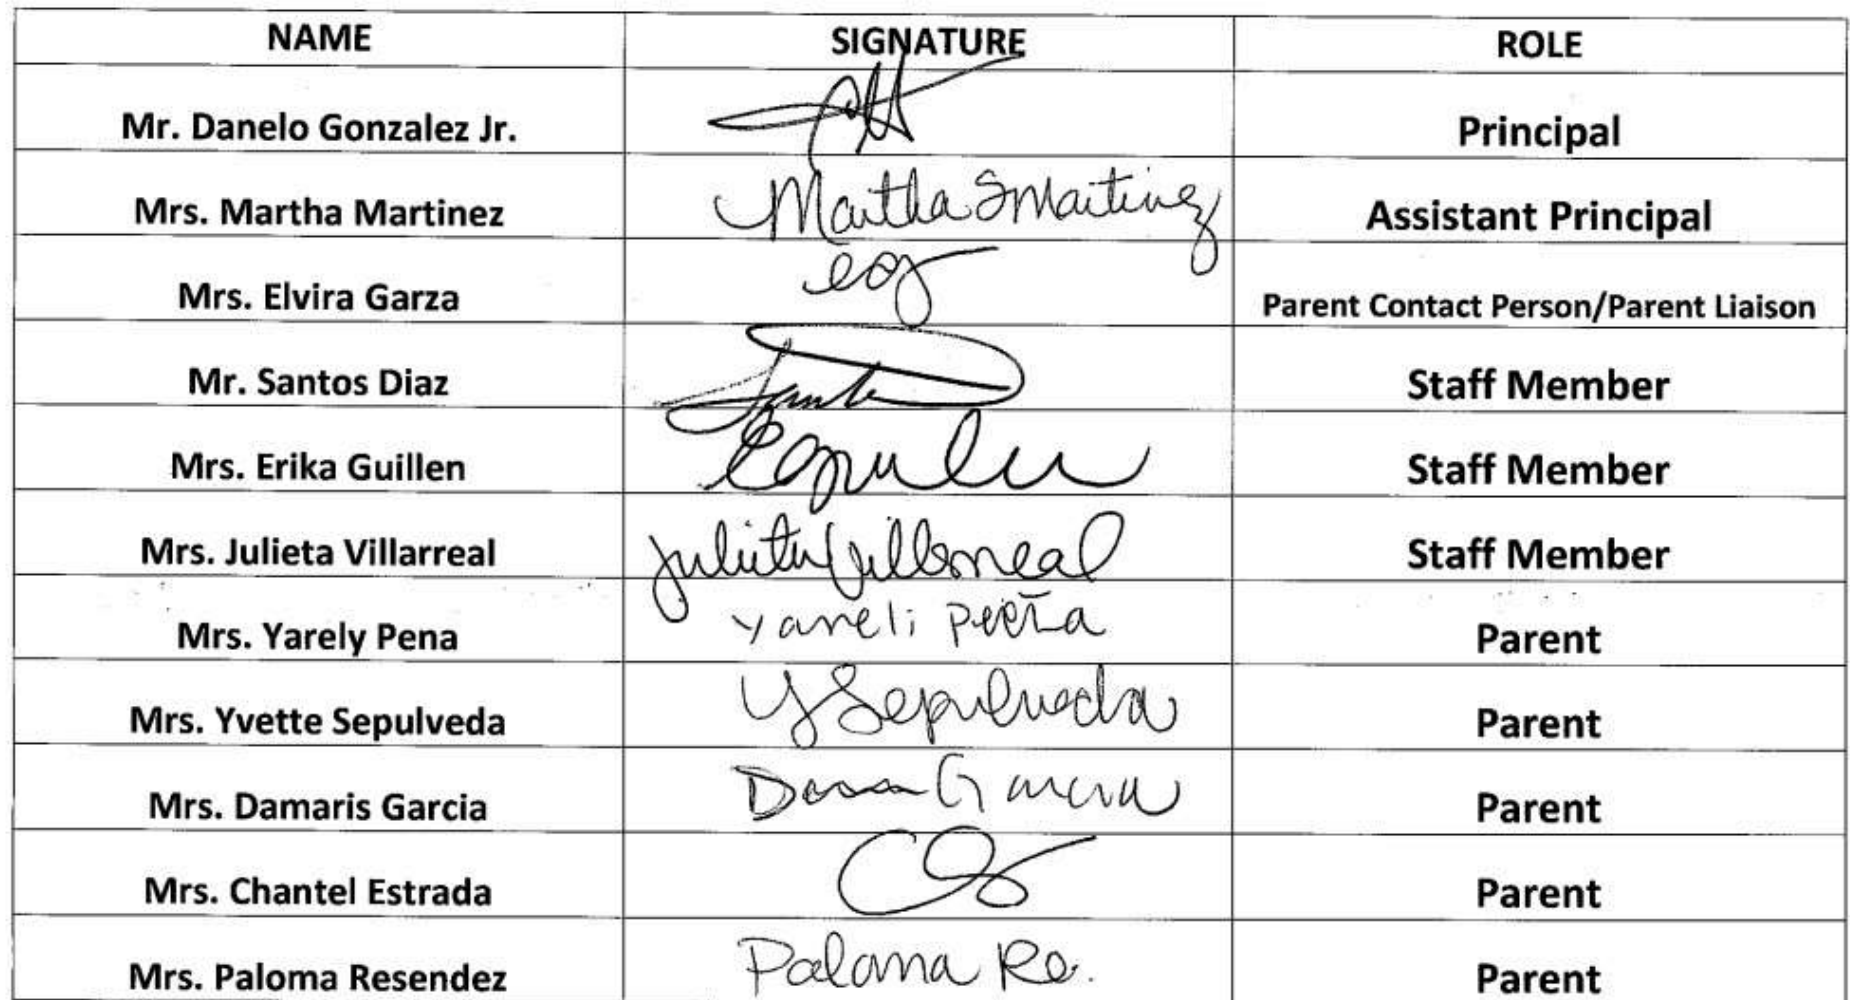 NAME SIGNATURE ROLE
Mr. Danelo Gonzalez Jr. Principal
Mrs. Martha Martinez Martha S Martinez Assistant Principal
Mrs. Elvira Garza eg Parent Contact Person/Parent Liaison
Mr. Santos Diaz Staff Member
Mrs. Erika Guillen Staff Member
Mrs. Julieta Villarreal Julieta Villarreal Staff Member
Mrs. Yarely Pena Yareli Peña Parent
Mrs. Yvette Sepulveda Y Sepulveda Parent
Mrs. Damaris Garcia Garcia Parent
Mrs. Chantel Estrada Parent
Mrs. Paloma Resendez Paloma Re. Parent